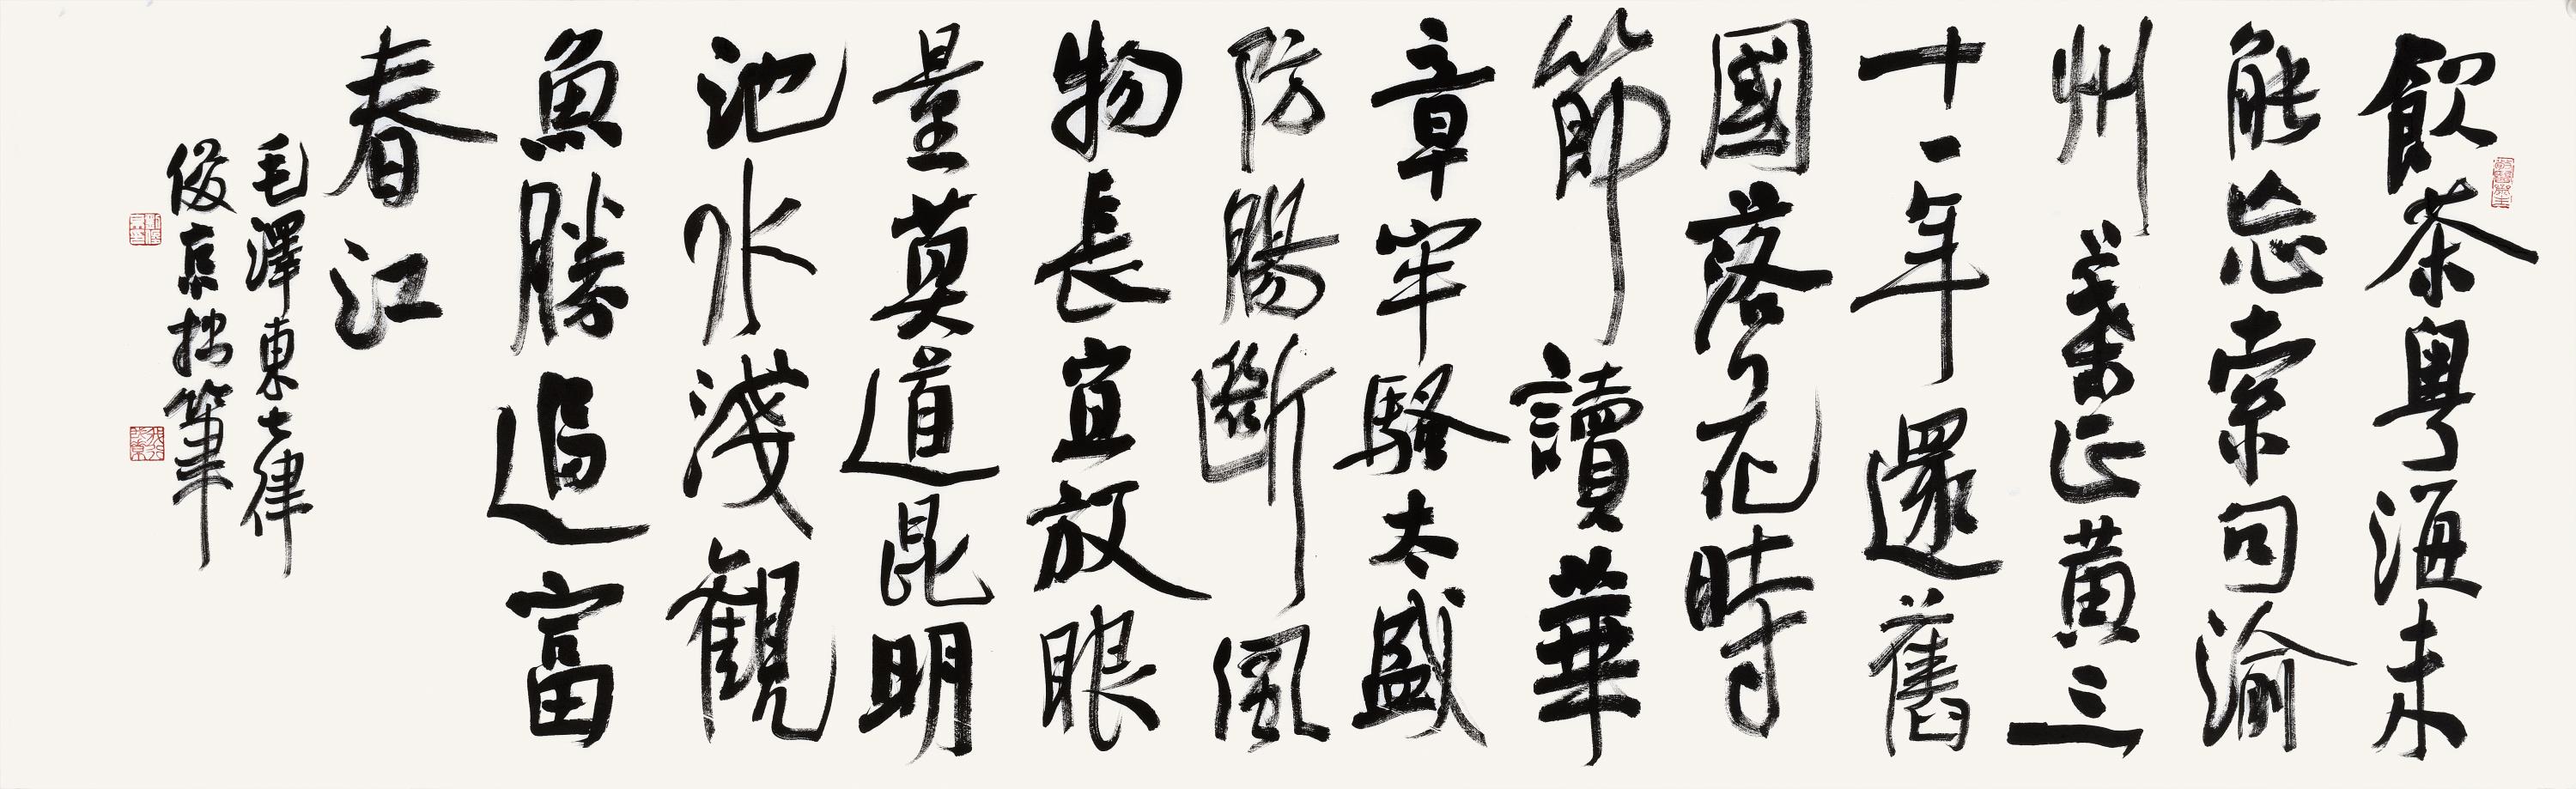 飲茶粤海未
能忘索句渝
州葉正黄三
十一年還舊
國落花時
節讀華
章牢騷太盛
防腸斷風
物長宜放眼
量莫道昆明
池水淺觀
魚勝過富
春江
毛澤東七律
俊京拙筆